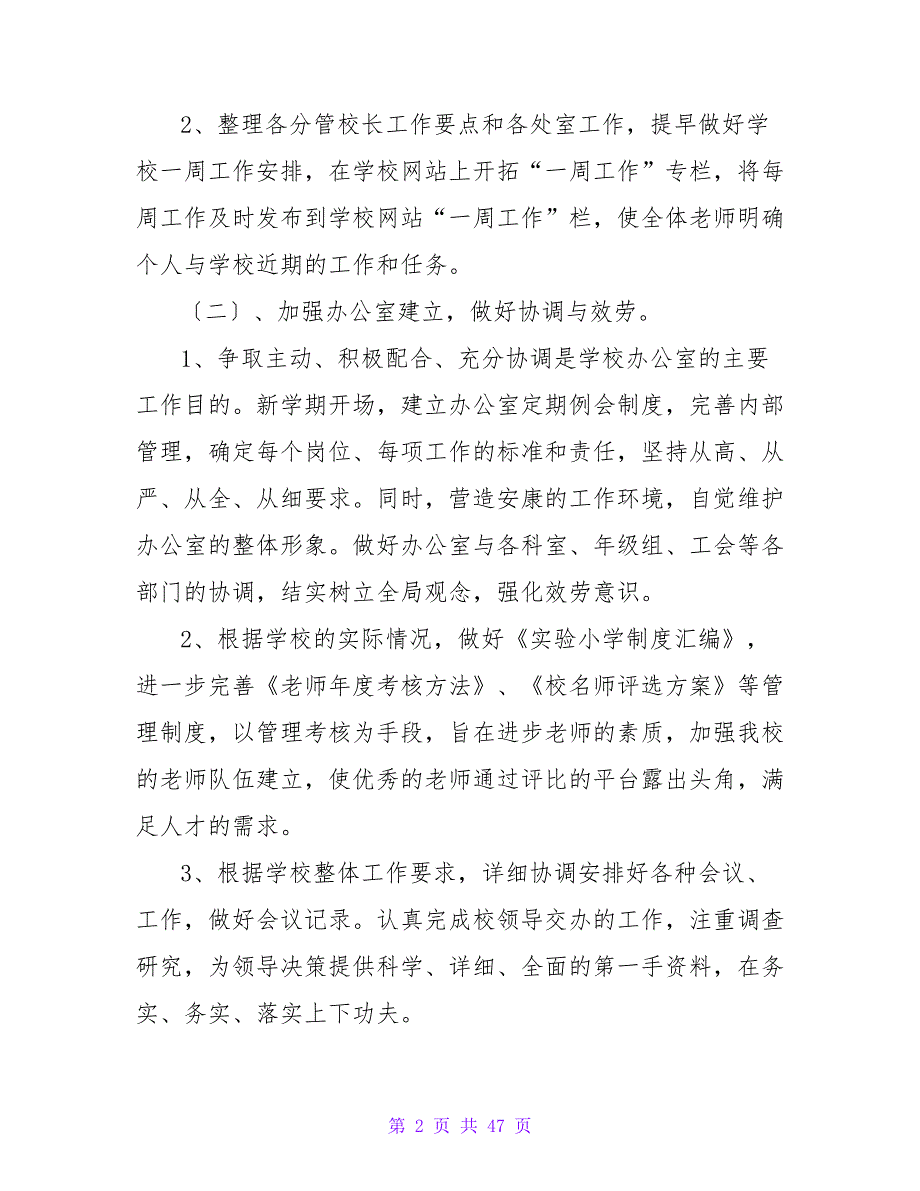 2、整理各分管校长工作要点和各处室工作，提早做好学
校一周工作安排，在学校网站上开拓“一周工作”专栏，将每
周工作及时发布到学校网站“一周工作”栏，使全体老师明确
个人与学校近期的工作和任务。
〔二〕、加强办公室建立，做好协调与效劳。
1、争取主动、积极配合、充分协调是学校办公室的主要
工作目的。新学期开场，建立办公室定期例会制度，完善内部
管理，确定每个岗位、每项工作的标准和责任，坚持从高、从
严、从全、从细要求。同时，营造安康的工作环境，自觉维护
办公室的整体形象。做好办公室与各科室、年级组、工会等各
部门的协调，结实树立全局观念，强化效劳意识。
2、根据学校的实际情况，做好《实验小学制度汇编》，
进一步完善《老师年度考核方法》、《校名师评选方案》等管
理制度，以管理考核为手段，旨在进步老师的素质，加强我校
的老师队伍建立，使优秀的老师通过评比的平台露出头角，满
足人才的需求。
3、根据学校整体工作要求，详细协调安排好各种会议、
工作，做好会议记录。认真完成校领导交办的工作，注重调查
研究，为领导决策提供科学、详细、全面的第一手资料，在务
实、务实、落实上下功夫。
第 2 页 共 47 页